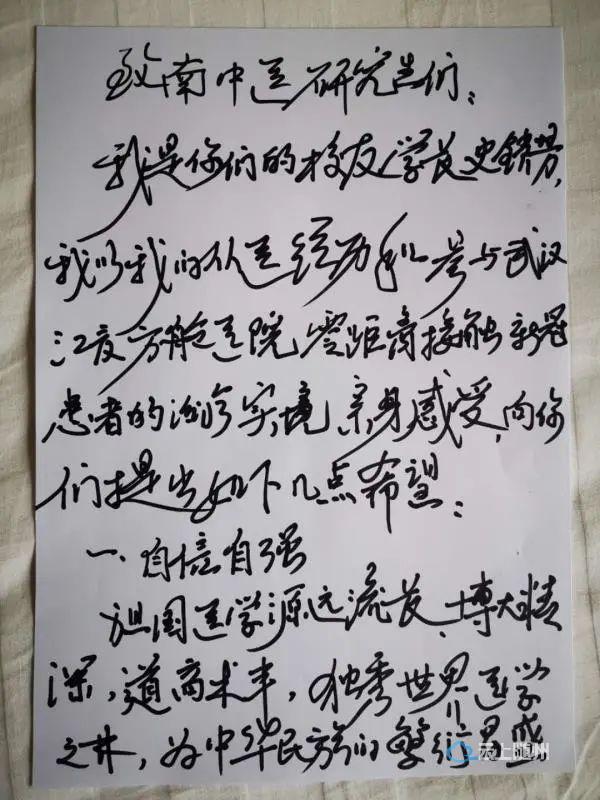 致南中医研究生们：
我是你们的校友学长史锁芳，
我以我的从医经历和参与武汉
江夏方舱医院零距离接触新冠
患者的诊治实境亲身感受，向你
们提出如下几点希望：
一、自信自强
祖国医学源远流长、博大精
深，道高术丰，独秀世界医学
之林，为中华民族的繁衍昌盛
云上随州